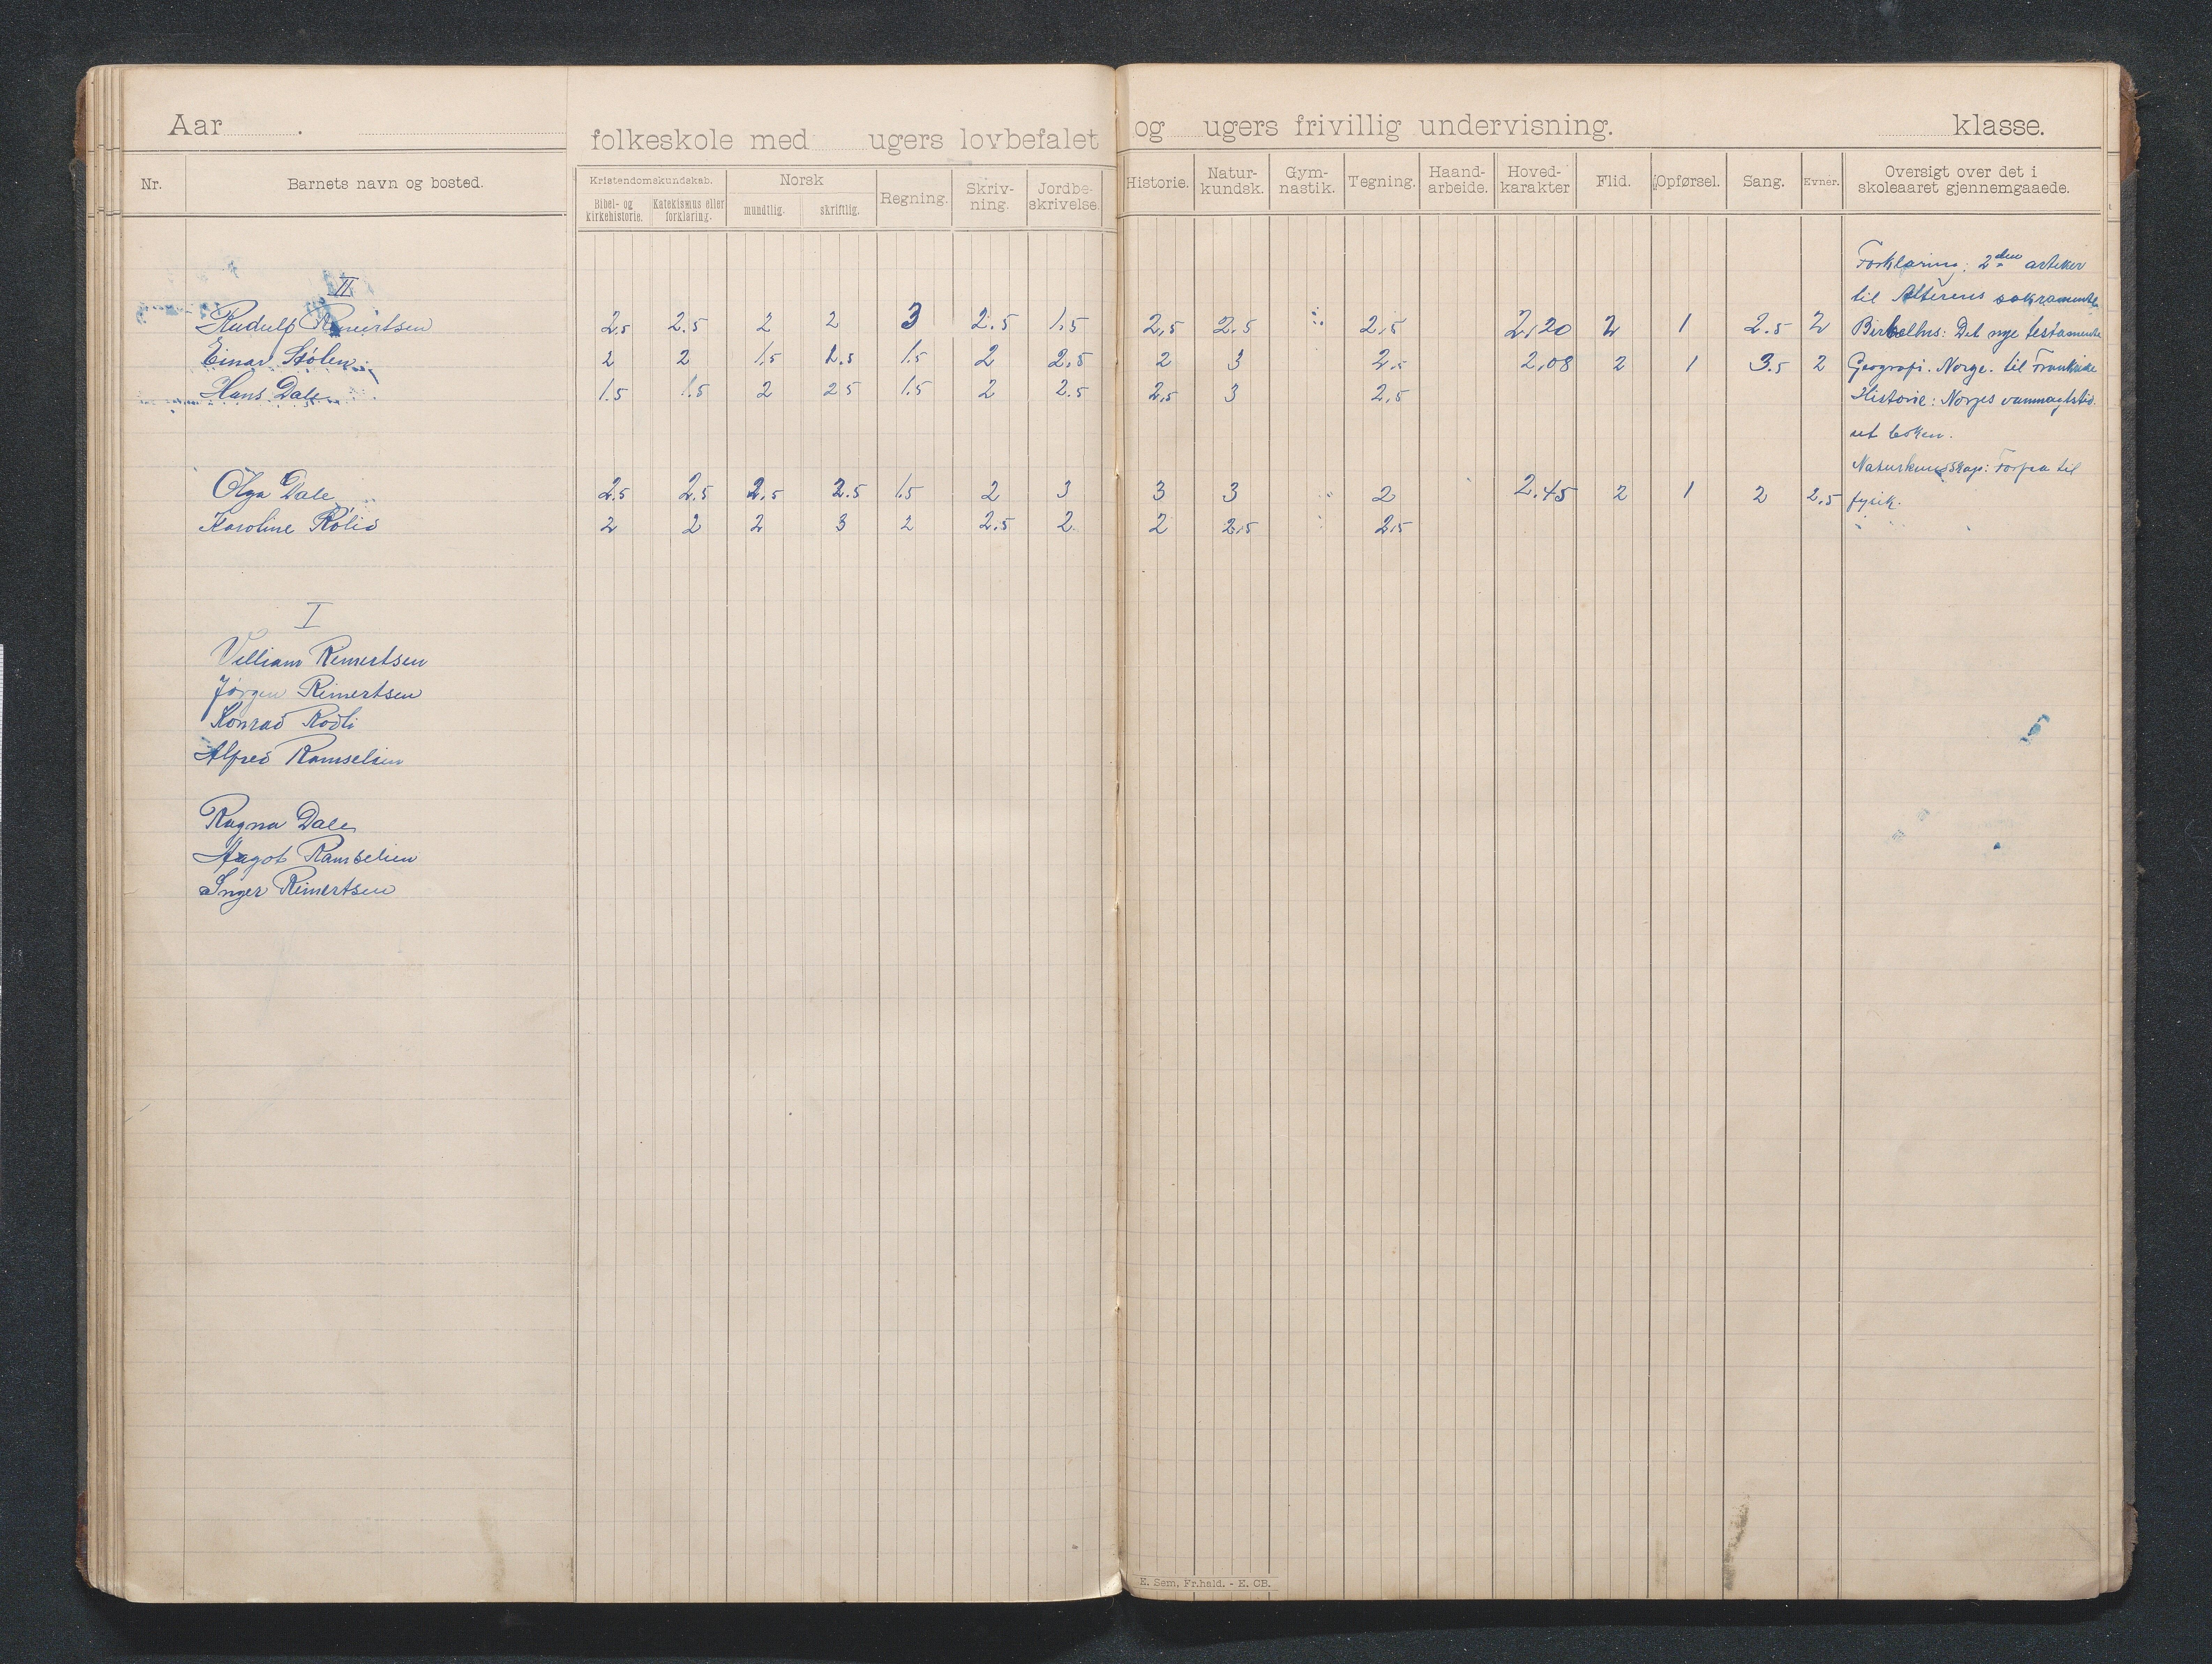 Aar . folkeskole med ugers lovbefalet og ugers frivillig undervisning. klasse.
Nr. Barnets navn og bosted. Kristendomskundskab. Norsk Regning. Skriv- Jordbe- Historie. Natur- Gym- Tegning. Haand- Hoved- Flid. Opførsel. Sang. Evner. Oversigt over det i
Bibel- og Katekismus eller mundtlig. skriftlig. ning. skrivelse. kundsk. nastik. arbeide. karakter skoleaaret gjennemgaaede.
kirkehistorie. forklaring.
Forklaring: 2den artikler
II til Alterens sakramente
Rudulf Reinertsen 2.5 2.5 2 2 3 2.5 1.5 2,5 2.5 2,5 2,20 2 1 2.5 2 Det nye testamente
Einar Stölen 2 2 1.5 2.5 1.5 2 2.5 2 3 2.5 2,08 2 1 3.5 2 Geografi. Norge. til Frankrike
Hans Dale 1.5 1.5 2 2 5 1.5 2 2.5 2,5 3 2,5 Historie: Norges vanmagtstid.
ut boken.
Naturkundskap: til
Olga Dale 2.5 2.5 2.5 2.5 1.5 2 3 3 3 2 2.45 2 1 2 2.5 fysik.
Karoline Rölid 2 2 2 3 2 2.5 2 2 2,5 2,5
I
Villiam Reinertsen
Jørgen Reinertsen
Konrad Rödli
Alfred Ramselien
Ragna Dale
Aagot Ramselien
Inger Reinertsen
E. Sem, Fr.hald. - E. CB.